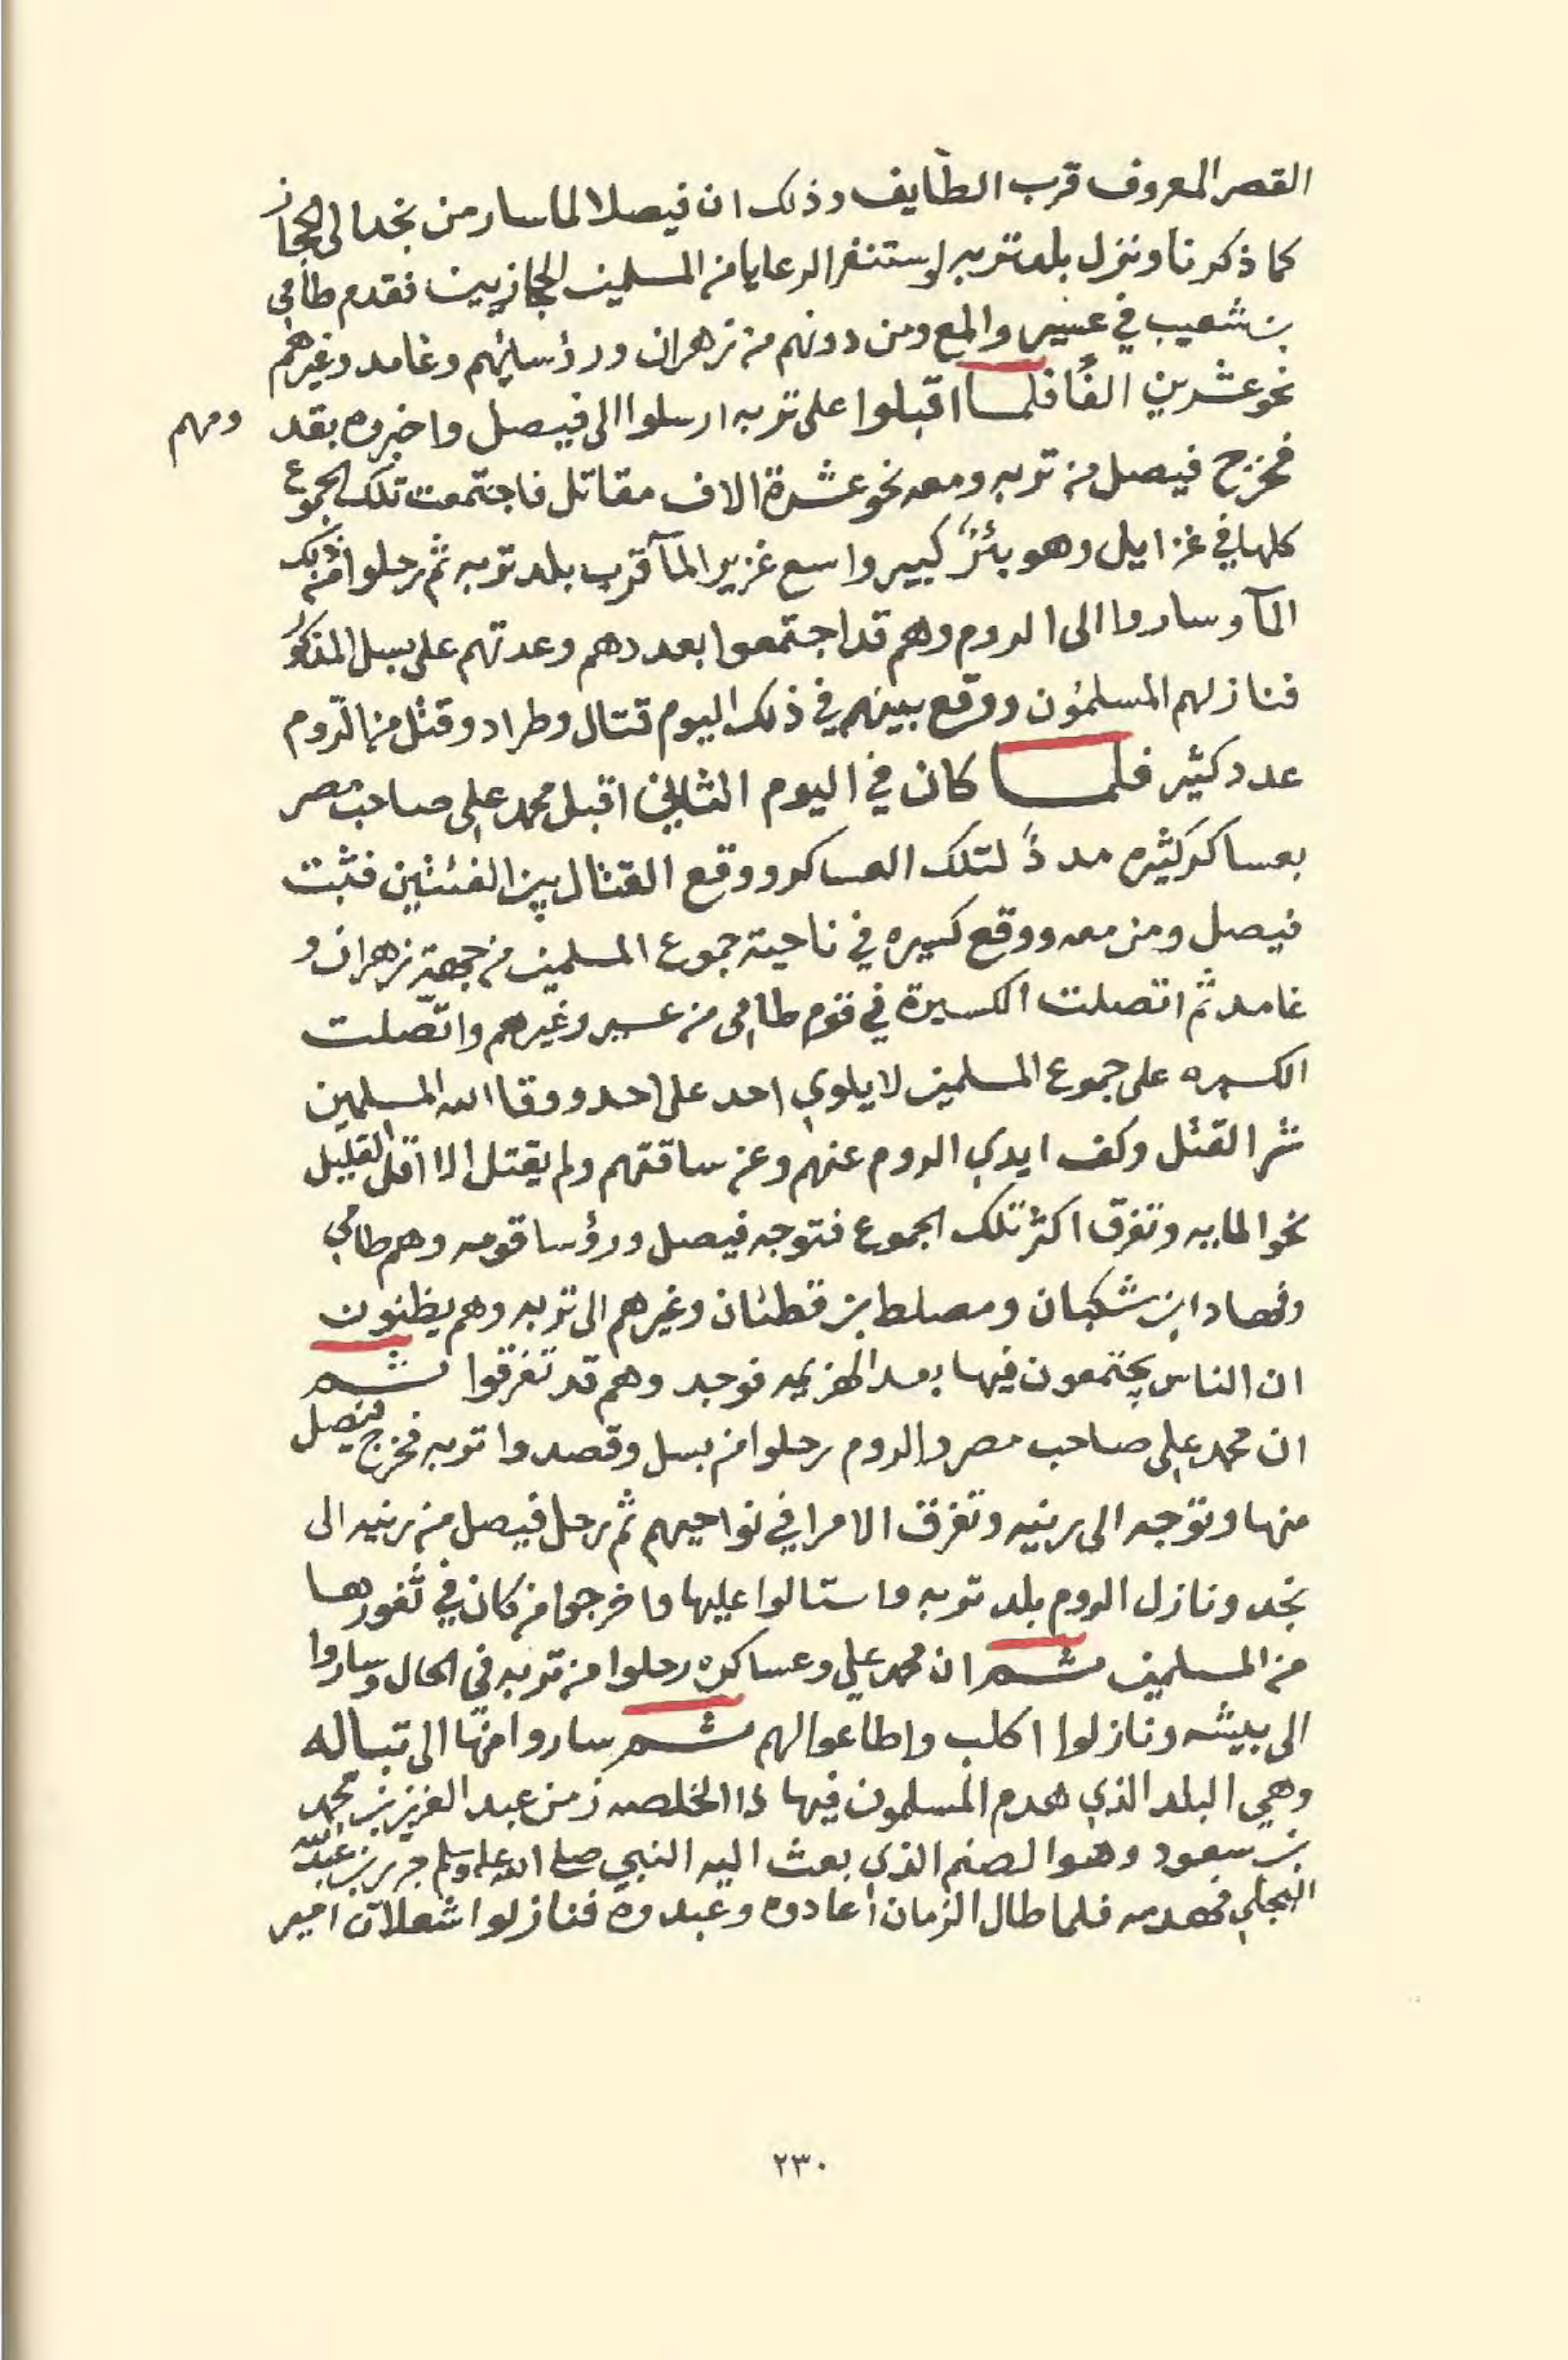 القصر المعروف قرب الطايف وذلك ان فيصلا لما سار من نجد الى الحجاز
كما ذكرنا ونزل بلد تربه استنفر الرعايا من المسلمين الحجازيين فقدم طامي
بن شعيب في عسير والمع ومن دونهم من زهران ورؤسايهم وغامد وغيرهم
نحو عشرين الفًا فلما اقبلوا على تربه ارسلوا الى فيصل واخبروه بقد ومهم
فخرج فيصل من تربه ومعه نحو عشرة الاف مقاتل فاجتمعت تلك الجموع
كلها في غزايل وهو بئرٌ كبير واسع غزير المآ قرب بلد تربه ثم رحلوا من ذلك
المآ وساروا الى الروم وهم قد اجتمعوا بعددهم وعدتهم على بسل المذكور
فنازلهم المسلمون ووقع بينهم في ذلك اليوم قتال وطراد وقتل من الروم
عدد كثير فلما كان في اليوم الثاني اقبل محمد علي صاحب مصر
بعساكر كثيره مددًا لتلك العساكر ووقع القتال بين الفئتين فثبت
فيصل ومن معه ووقع كسيره في ناحية جموع المسلمين من جهة زهران و
غامد ثم اتصلت الكسيرة في قوم طامي من عسير وغيرهم واتصلت
الكسيره على جموع المسلمين لا يلوي احد على احد ووقا الله المسلمين
شر القتل وكف ايدي الروم عنهم وعن ساقتهم ولم يقتل الا اقل القليل
نحو المايه وتفرق اكثر تلك الجموع فتوجه فيصل ورؤسا قومه وهم طامي
وفهاد ابن شكبان ومصلط بن قطنان وغيرهم الى تربه وهم يظنون
ان الناس يجتمعون فيها بعد الهزيمه فوجد وهم قد تفرقوا ثم
ان محمد علي صاحب مصر والروم رحلوا من بسل وقصدوا تربه فخرج فيصل
منها وتوجه الى رنيه وتفرق الامرا في نواحيهم ثم رحل فيصل من رنيه الى
نجد ونازل الروم بلد تربه واستالوا عليها واخرجوا من كان في ثغورها
من المسلمين ثم ان محمد علي وعساكره رحلوا من تربه في الحال وساروا
الى بيشه ونازلوا اكلب واطاعوا لهم ثم ساروا منها الى تباله
وهي البلد الذي هدم المسلمون فيها ذا الخلصه زمن عبد العزيز بن محمد
بن سعود وهو الصنم الذي بعث اليه النبي صلى الله عليه وسلم جرير بن عبد الله
البجلي فهدمه فلما طال الزمان اعادوه وعبدوه فنازلوا شعلان امير
٢٣٠